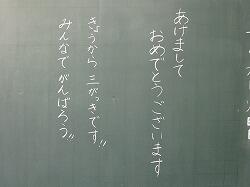 あけまして
おめでとうございます
きょうから 三がっきです!!
みんなで がんばろう!!